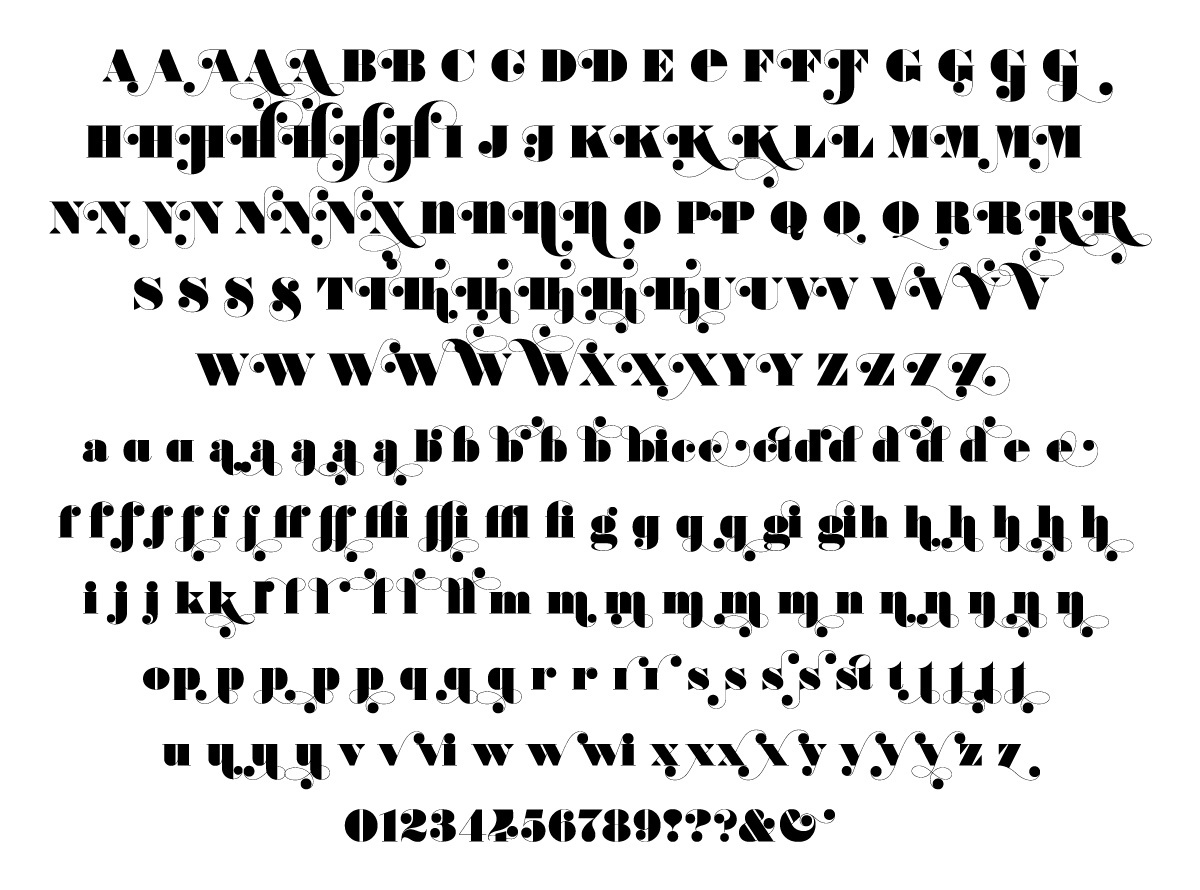 A A A A A B B C C D D E e F F F G G G G
H H H H H H H I J J K K K K L L M M M M
N N N N N N N N n n n n O P P Q Q Q R R R R
S S S S T T Th Th Th Th Th U U V V V V V V
W W W W W W X X X X Y Y Z Z Z Z
a a a a a a a a b b b b b bi c c ct d d d d d e e
f f f f f f f ff ff ffi ffi ffl fi g g g g gi gi h h h h h h
i j j k k l l l l l ll m m m m m m n n n n n n
o p p p p p q q q r r r r s s s s st t t t t t
u u u u v v vi w w wi x x x x y y y y z z
0 1 2 3 4 4 5 6 7 8 9 ! ? ? ? & &